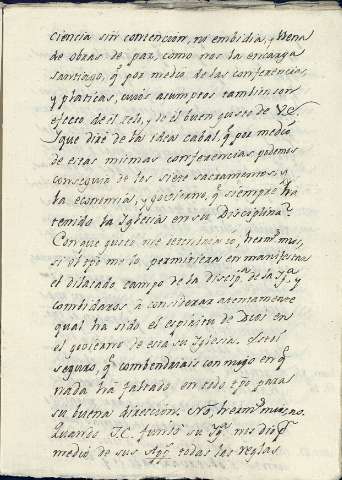 ciencia sin contencion, no embidia, y llena
de obras de paz, como nos la encarga
Santiago, q.e por medio de las conferencias,
y platicas, cuios asumptos tambien son
efecto de el zelo, y de el buen gusto de V.E.
Y que diré de la idea cabal, q.e por medio
de estas mismas conferencias podemos
conseguir de los siete sacramentos, y
la economia, y govierno, q.e siempre ha
tenido la Iglesia en su Disciplina.
Con que gusto me detendria io, herm.s mios,
si el tpo me lo permitiera en manifestar
el dilatado campo de la discip.a de la Ig.a, y
combidaros à considerar atentamente
qual ha sido el espiritu de Dios en
el govierno de esta su Iglesia. Estoi
seguro, q.e combendriais conmigo en q.e
nada ha faltado en todo tpo para
su buena direccion. No, herm.s mios, no.
Quando J.C. fundó su Ig.a nos dio p.r
medio de sus App.s todas las reglas